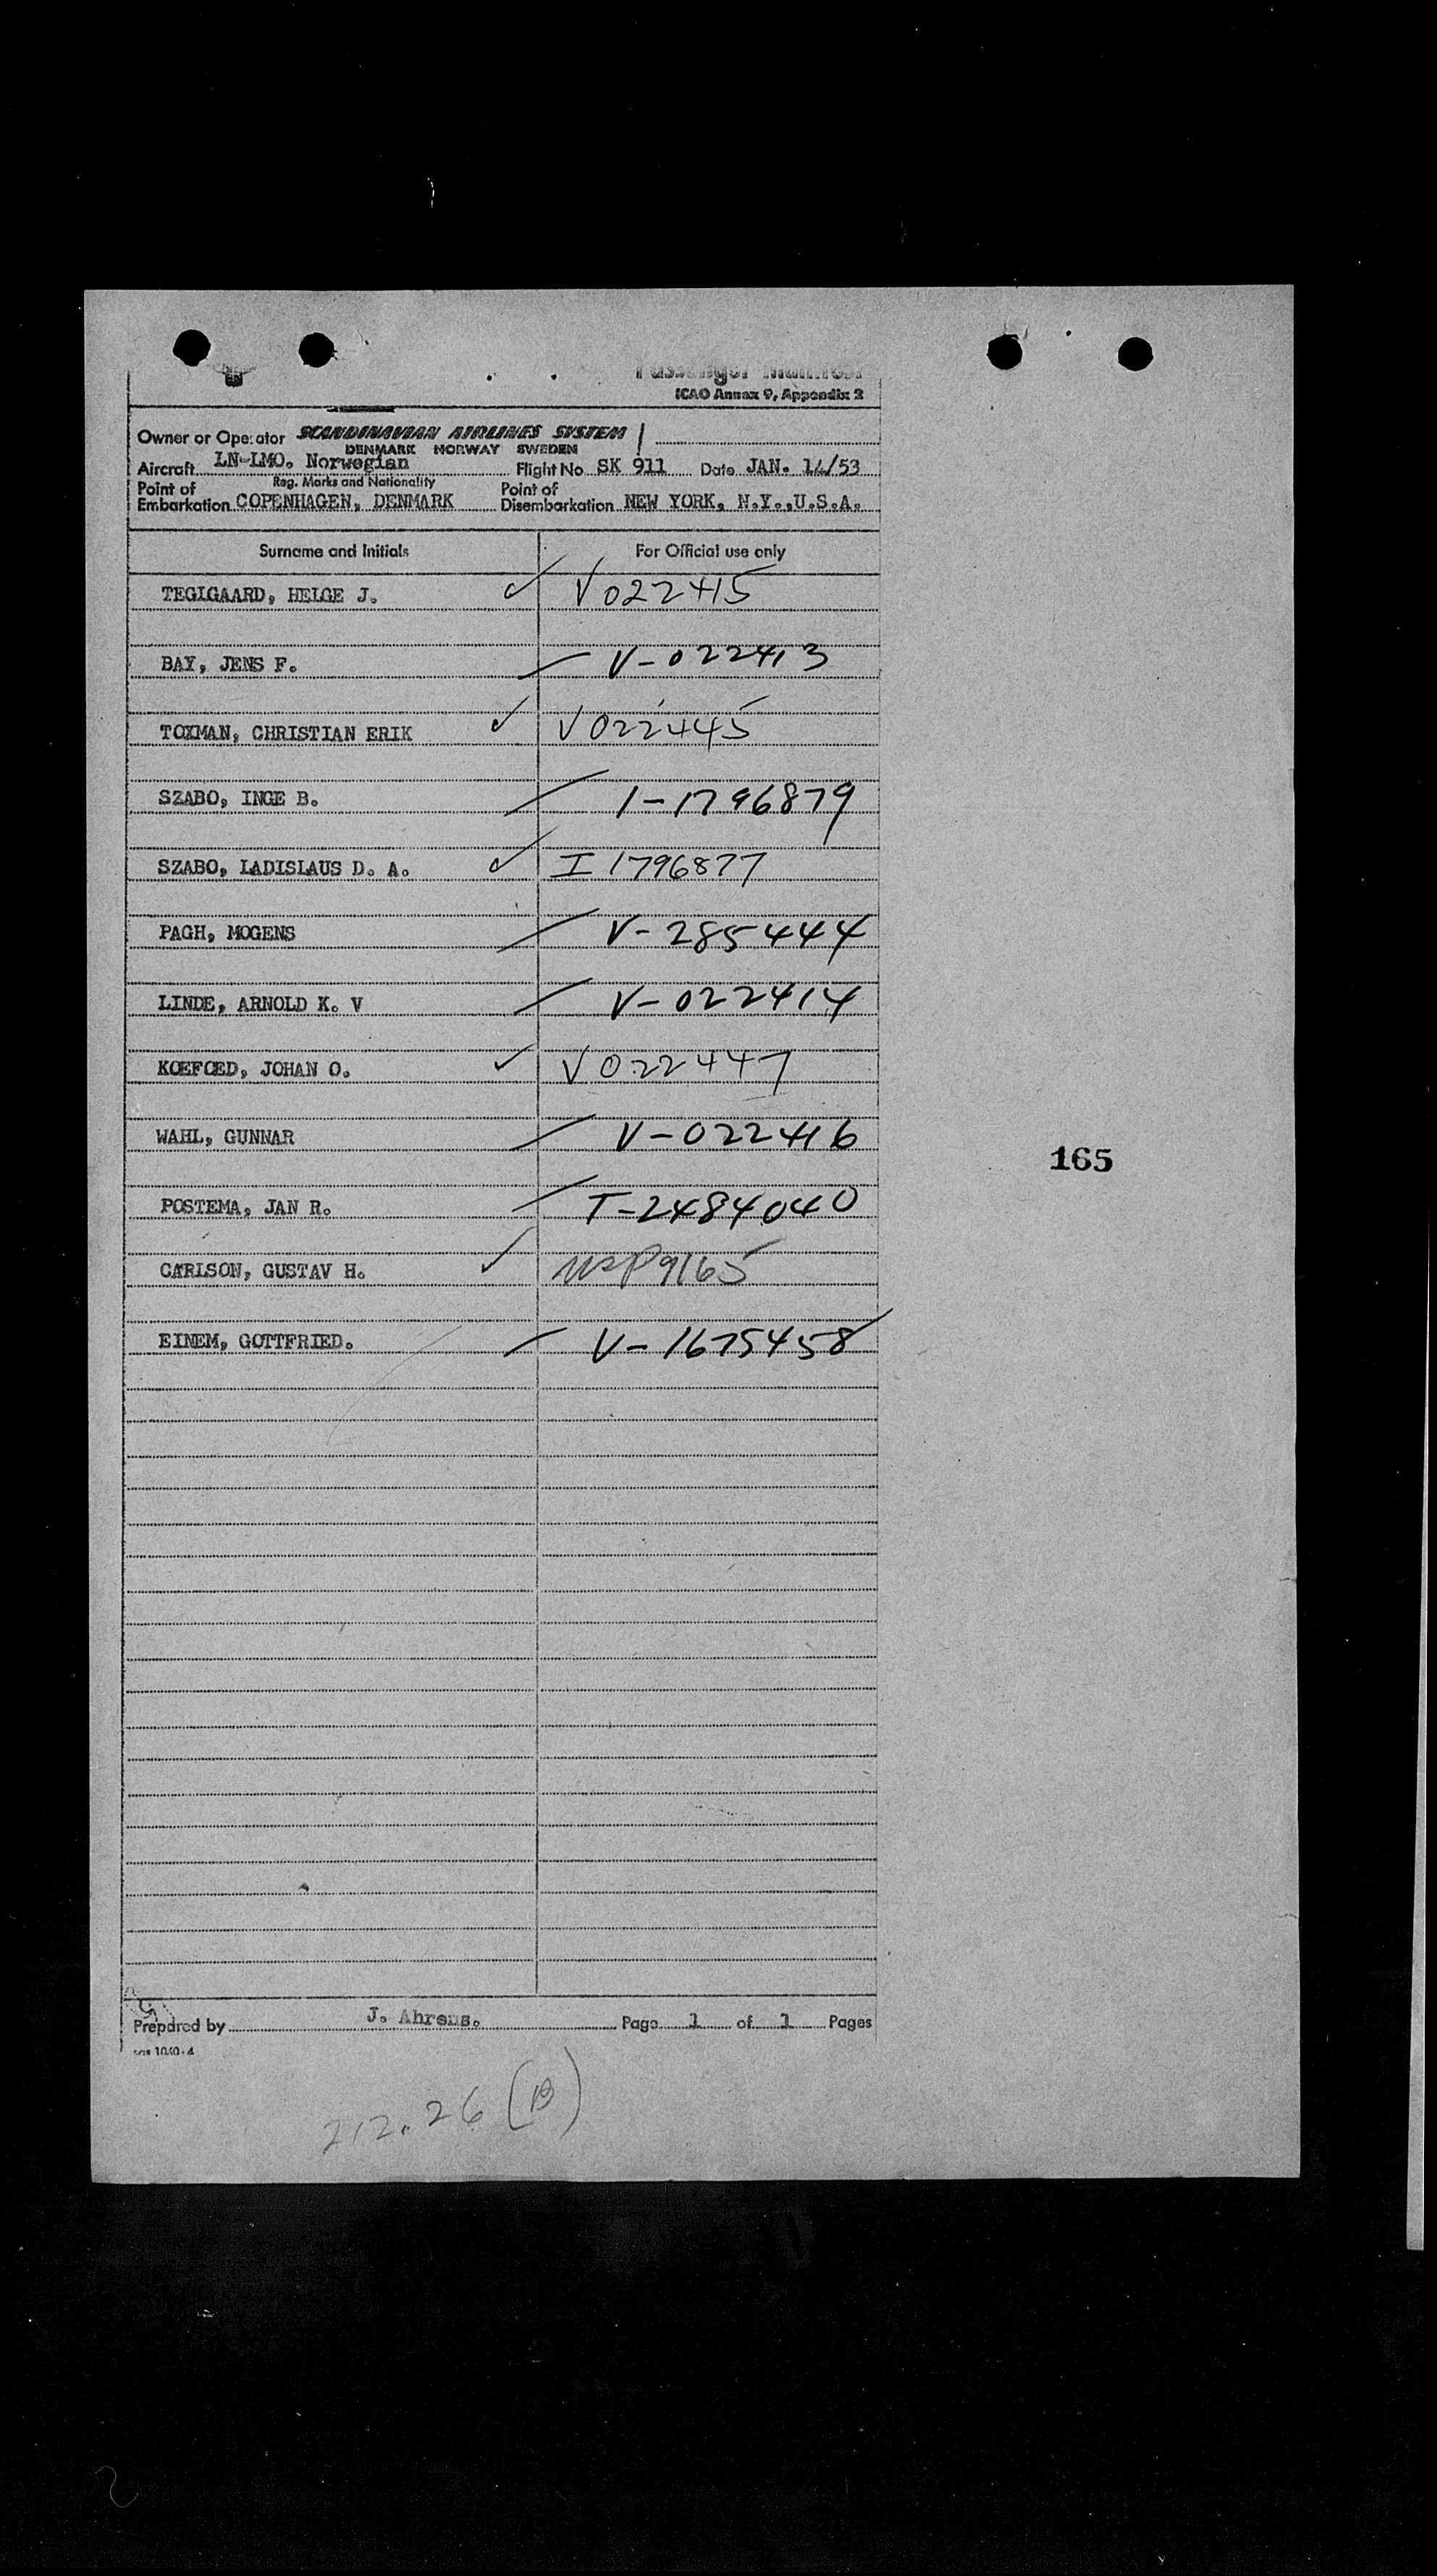 Passenger Manifest
ICAO Annex 9, Appendix 2
Owner or Operator SCANDINAVIAN AIRLINES SYSTEM
DENMARK NORWAY SWEDEN
Aircraft LN-LMO. Norwegian Flight No SK 911 Date JAN. 14/53
Reg. Marks and Nationality
Point of Embarkation COPENHAGEN, DENMARK Point of Disembarkation NEW YORK, N.Y.,U.S.A.
Surname and Initials For Official use only
TEGIGAARD, HELGE J. ✓ V022415
BAY, JENS F. V-022413
TOXMAN, CHRISTIAN ERIK ✓ V022445
SZABO, INGE B. I-1796879
SZABO, LADISLAUS D. A. ✓ I1796877
PAGH, MOGENS V-285444
LINDE, ARNOLD K. V V-022414
KOEFOED, JOHAN O. ✓ V022447
WAHL, GUNNAR V-022416
165
POSTEMA, JAN R. T-2484040
CARLSON, GUSTAV H. ✓ USP9165
EINEM, GOTTFRIED. V-1675458
Prepared by J. Ahrens. Page 1 of 1 Pages
212.26 (B)